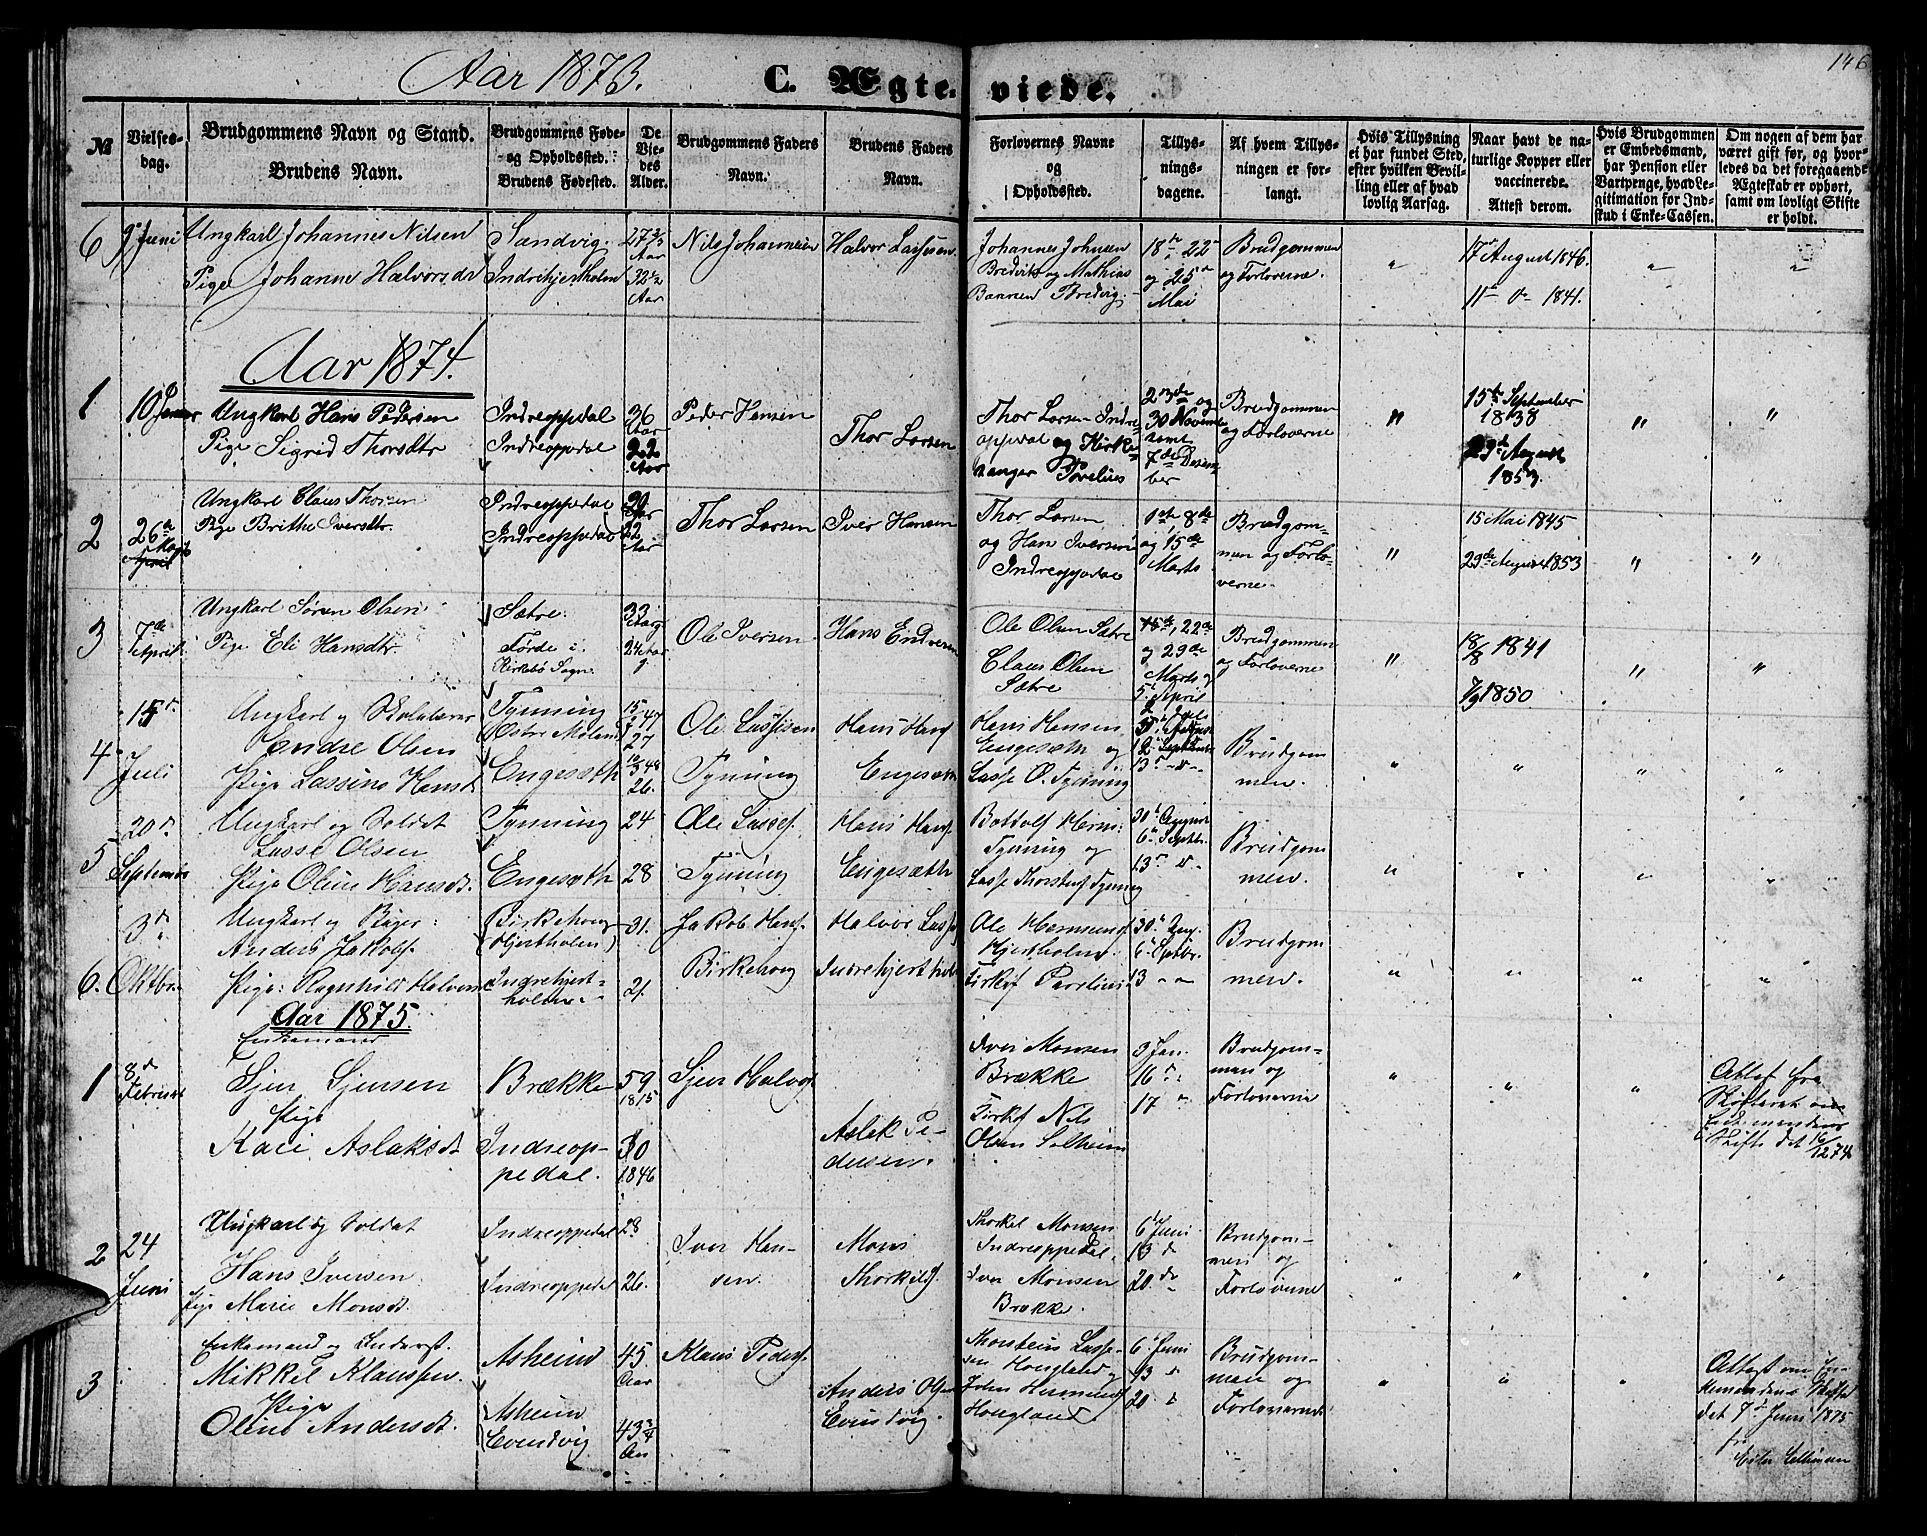 Aar 1873. C. Ægte- viede. 146
№
Vielses-
dag.
Brudgommens Navn og Stand.
Brudens Navn.
Brudgommens Føde-
og Opholdssted.
Brudens Fødested.
De
Vie-
des
Alder.
Brudgommens Faders
Navn.
Brudens Faders
Navn.
Forlovernes Navne
og
Opholdssted.
Tillys-
nings-
dagene.
Af hvem Tillys-
ningen er for-
langt.
Hvis Tillysning
ei har fundet Sted,
efter hvilken Bevil-
ling eller af hvad
lovlig Aarsag.
Naar havt de na-
turlige Kopper eller
vaccinerede.
Attest derom.
Hvis Brudgommen
er Embedsmand,
har Pension eller
Vartpenge, hvad Le-
gitimation for Ind-
skud i Enke-Cassen.
Om nogen af dem har
været gift før, og hvor-
ledes da det foregaaende
Ægteskab er ophørt,
samt om lovligt Skifte
er holdt.
6 Juni
Ungkarl Johannes Nilsen
Pige Johanne Halvorsdr
Sandvig.
Indrehjertholm
27 Aar
32½ Aar
Nils Johannesen
Halvor Lassesen
Johannes Johnsen
Bredvik og Mathias
Hansen Bredvig.
18de 22
og 25
Mai
Brudgommen
og Forloverne.
"
17 August 1846.
11 do 1841.
"
"
Aar 1874.
1
10 Januar
Ungkarl Hans Pedersen
Pige Sigrid Thorsdtr
Indreoppedal
Indreoppedal
36
Aar
22
Aar
Peder Hansen
Thor Larsen
Thor Larsen Indre-
oppedal og Kirke-
sanger Povelius
23de og
30 Novembr
samt
7de Decem
ber
Brudgommen
og Forloverne
"
15de September
1838
29de August
1853.
"
"
2
26
April
Ungkarl Claus Thorsen
Pige Brithe Iversdtr.
Indreoppedal
Indreoppedal
Aar
22
Aar
Thor Larsen
Iver Hansen
Thor Larsen
og Hans Iversen
Indreoppedal
1ste 8de
og 15de
Marts
Brudgom-
men og Forlo-
verne.
"
15 Mai 1845
29de August 1853
"
"
3
7de
April
Ungkarl Søren Olsen
Pige Eli Hansdtr.
Sætre.
Førde i
Kirkebø Sogn.
33
Aar
24 Aar
Ole Iversen
Hans Endresen
Ole Olsen Sætre
Claus Olsen
Sætre
15de, 22de
og 29de
Marts og
5 April
Brudgommen
og Forloverne
"
18/8 1841
7/9 1850
"
"
4
15
Juli
Ungkarl og Skolelærer
Endre Olsen
Pige Lassine Hansdt
Tynning
Engesæth
27
26.
Ole Lassesen
Tynning
Hans Hans
Engesæth
Hans Hansen
Engesæth og
Lasse O. Tynning
Brudgom
men.
"
"
"
"
5
20
September
Ungkarl og Soldat
Lasse Olsen
Pige Oline Hansdt.
Tynning
Engesæth
24
28
Ole Lasses.
Tynning
Hans Hans
Engesæth
Tynning og
Lasse Tynning
30 August
6 Septbr.
13 d
Brudgom
men.
"
"
"
"
6.
3
Oktbr
Ungkarl og
Anders Jakobs.
Pige: Ragnhild Halvors
Birkehoug
(Hjertholm)
Indrehjert-
holm
31.
21.
Jakob Hans.
Birkehoug
Halvor Lass.
Indrehjertholm
Ole
Hjertholm
Kirkes. Pavelius
30 Aug.
6 Septbr.
13
Brudgom
men.
"
"
"
"
Aar 1875.
1
8d
Februar
Enkemand
Sjur Sjursen
Pige
Kari Aslaksdt
Brække
Indreop-
pedal.
59
1815
30
1846
Sjur Halvos
Aslak Pe-
dersen.
Iver Monsen
Brække
Kirkes. Nils
Olsen Solheim
3 Jan.
16
17
Brudgom-
men og
Forloverne
"
"
"
Attest fra
Skifteret om
Enkemandens
Skifte det 16/12 74
2
24
Juni
Ungkarl og Soldat
Hans Iversen
Pige Marie Monsdt.
Indreoppedal
Indreoppedal
28
26.
Iver Han-
sen
Mons
Thorkils.
Thorkel Monsen
Indreoppedal.
Iver Monsen
Brække.
6 Juni
13 d
20 do
Brudgom-
men og
Forloverne
"
"
"
"
3
Enkemand og Inderst.
Mikkel Klaussen.
Pige
Oline Andersdt.
Asheim
Asheim
Evindvig
45
Aar
43¾
Aar
Klaus Peders.
Anders Olsen
Evindvig.
Thorstein Lasse-
sen Hougland og
John
Hougland
6 Juni
13 d
20 d
Brudgom-
men og
Forloverne
"
"
"
Attest om En-
kemandens Skifte
det 7 Juni 1875
fra